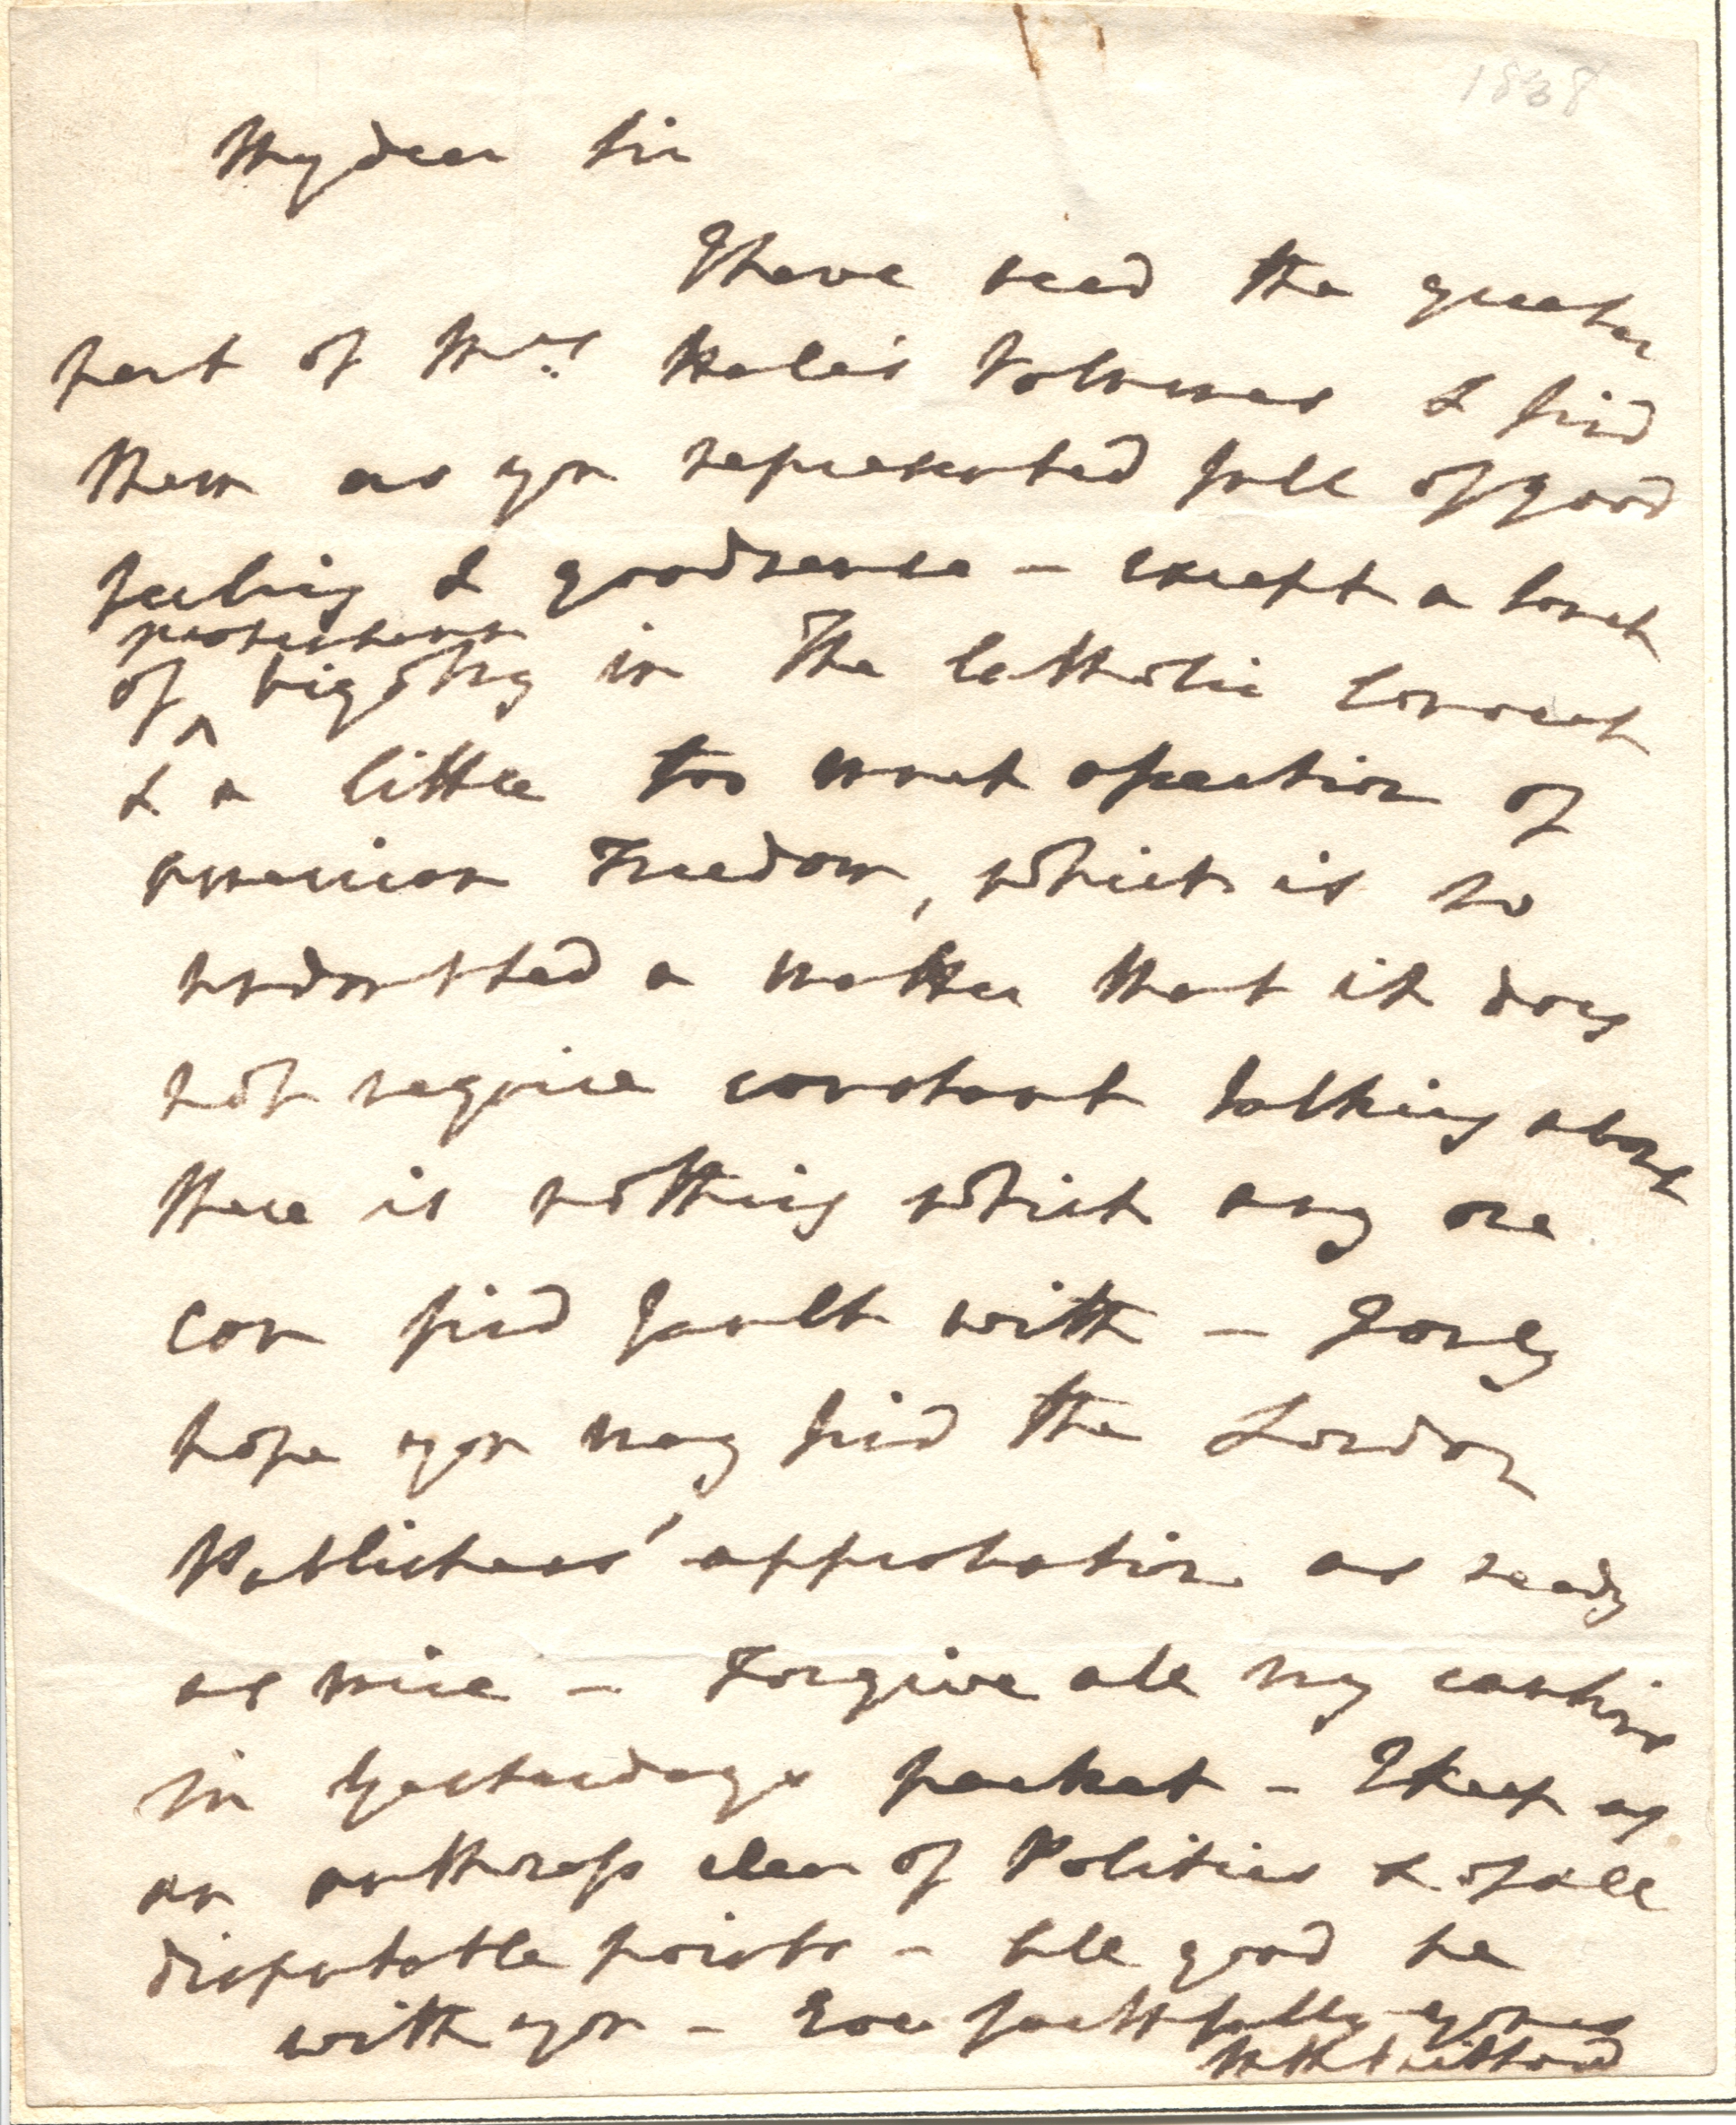 1838
My dear Sir
I have read the greater
part of Mrs. Hale's Volumes & find
them as you represented full of good
feeling & good sense – except a touch
protestant
of ^ bigotry in The Catholic Convent
& a little too much
American Freedom, which is so
undoubted a matter that it does
not require constant talking about
there is nothing which any one
can find fault with – I only
hope you may find the London
Publishers' approbation as ready
as mine – Forgive all my cautions
in Yesterdays packet – I keep as
an authoress clear of Politics & of all
disputable points – All good be
with you – Ever faithfully yours
M R Mitford